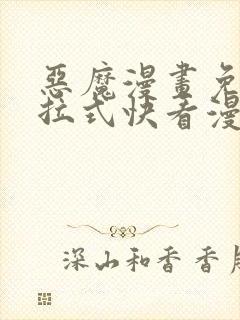 惡魔漫畫免
拉式快看漫
深山和香香